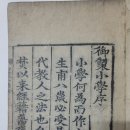 御製小學序
小學何爲而作
生甫八歲必受是
代教人之法也
焚以來經籍蕩